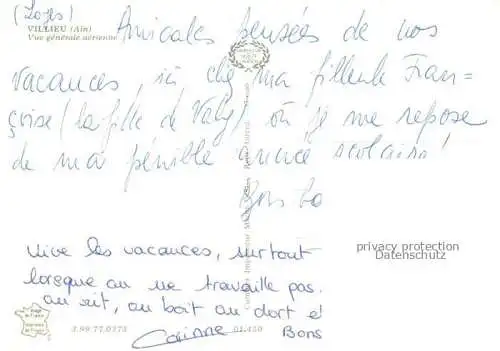 (Loyes)
VILLIEU (Ain)
Vue générale aérienne
Amicales pensées de nos
vacances, ici chez ma filleule Fran=
çoise (la fille de Valy) où je me repose
de ma pénible année scolaire!
Bons
Vive les vacances, surtout
lorsque on ne travaille pas.
on rit, on boit on dort et
Corinne Bons
privacy protection
Datenschutz
3.99 77.0373
01.450